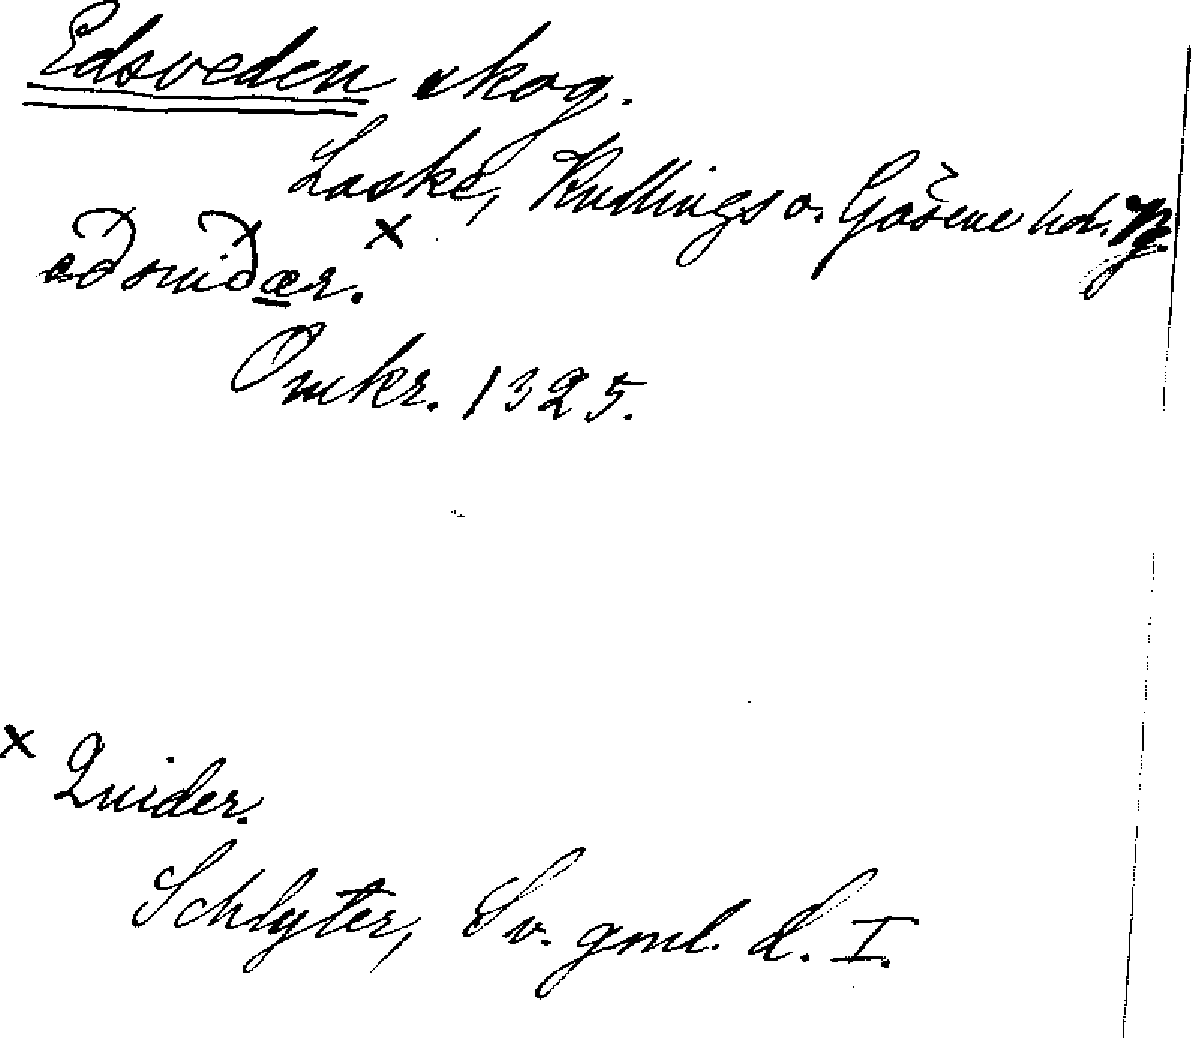 Edsveden skog.
Laske, Kullings o. Gäsene hd. Vg.
æðsuiðær. x
Omkr. 1325.
x Quider.
Schlyter, Sv. gml. l. I.